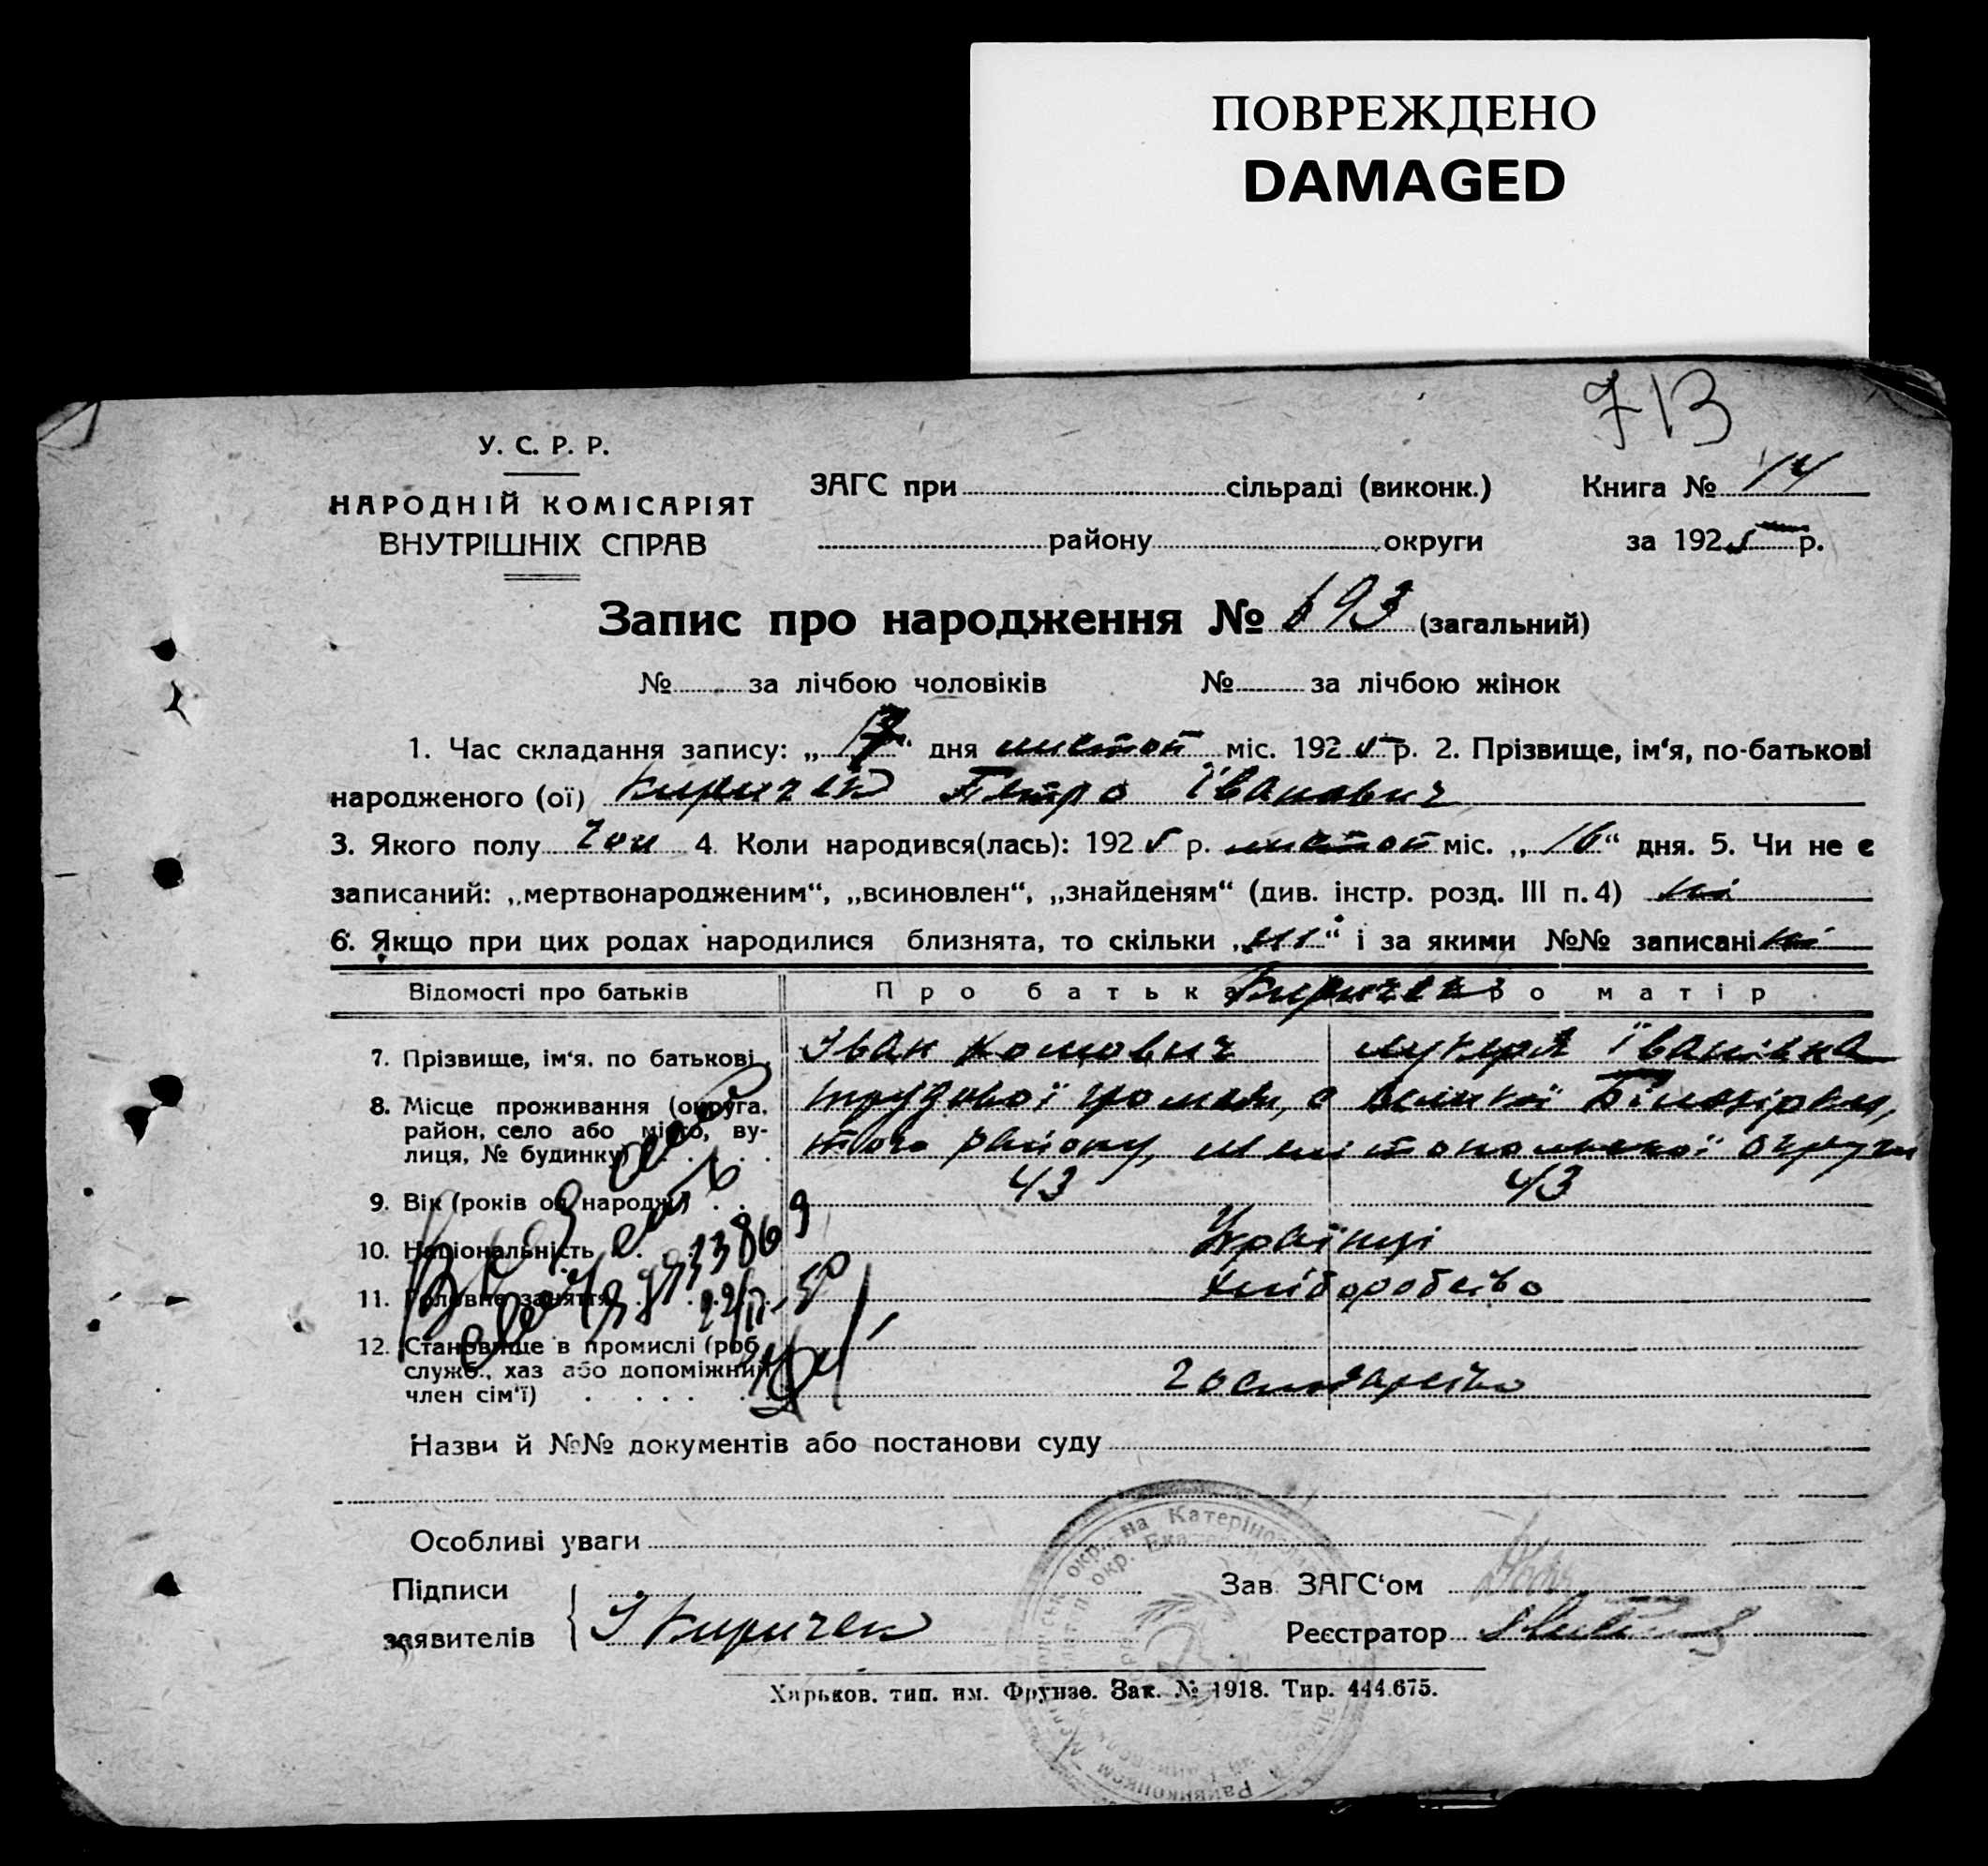 ПОВРЕЖДЕНО
DAMAGED
713
У. С. Р. Р.
НАРОДНІЙ КОМІСАРІЯТ
ВНУТРІШНІХ СПРАВ
ЗАГС при сільраді (виконк.)
району округи
Книга № 14
за 1925 р.
Запис про народження № 693 (загальний)
№ за лічбою чоловіків № за лічбою жінок
1. Час складання запису: „17“ дня листоп міс. 1925 р. 2. Прізвище, ім‘я, по-батькові
народженого (ої) Киричек Петро Іванович
3. Якого полу чол 4. Коли народився(лась): 1925 р. листоп міс. „16“ дня. 5. Чи не є
записаний: „мертвонародженим“, „всиновлен“, „знайденям“ (див. інстр. розд. III п. 4) ні
6. Якщо при цих родах народилися близнята, то скільки „ні“ і за якими №№ записані ні
Відомості про батьків Про батька Киричек Про матір
7. Прізвище, ім‘я, по батькові Іван Хомович Лукеря Іванівна
8. Місце проживання (округа, район, село або місто, вулиця, № будинку) Трудової громади, с Великої Білозірки,
того району, Мелітопольської округи
9. Вік (років од народж.) 43 43
10. Національність Українці
11. Головне заняття хліборобство
12. Становище в промислі (роб., служб., хаз або допоміжний член сім‘ї) господарство
Назви й №№ документів або постанови суду
Особливі уваги
Підписи
заявителів І Киричек
Зав. ЗАГС‘ом
Реєстратор
Харьков. тип. им. Фрунзе. Зак. № 1918. Тир. 444.675.